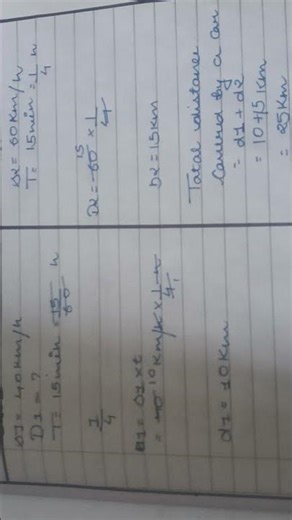 s1 = 40 km/h
D1 = ?
T = 15 min = 15/60 h
1/4
D1 = s1 x t
= 40 10 km/h x 1/4 h
d1 = 10 km
s2 = 60 km/h
T = 15 min = 1/4 h
D2 = 60 15 x 1/4
D2 = 15 km
Total distance
Covered by a car
= d1 + d2
= 10 + 15 km
= 25 km